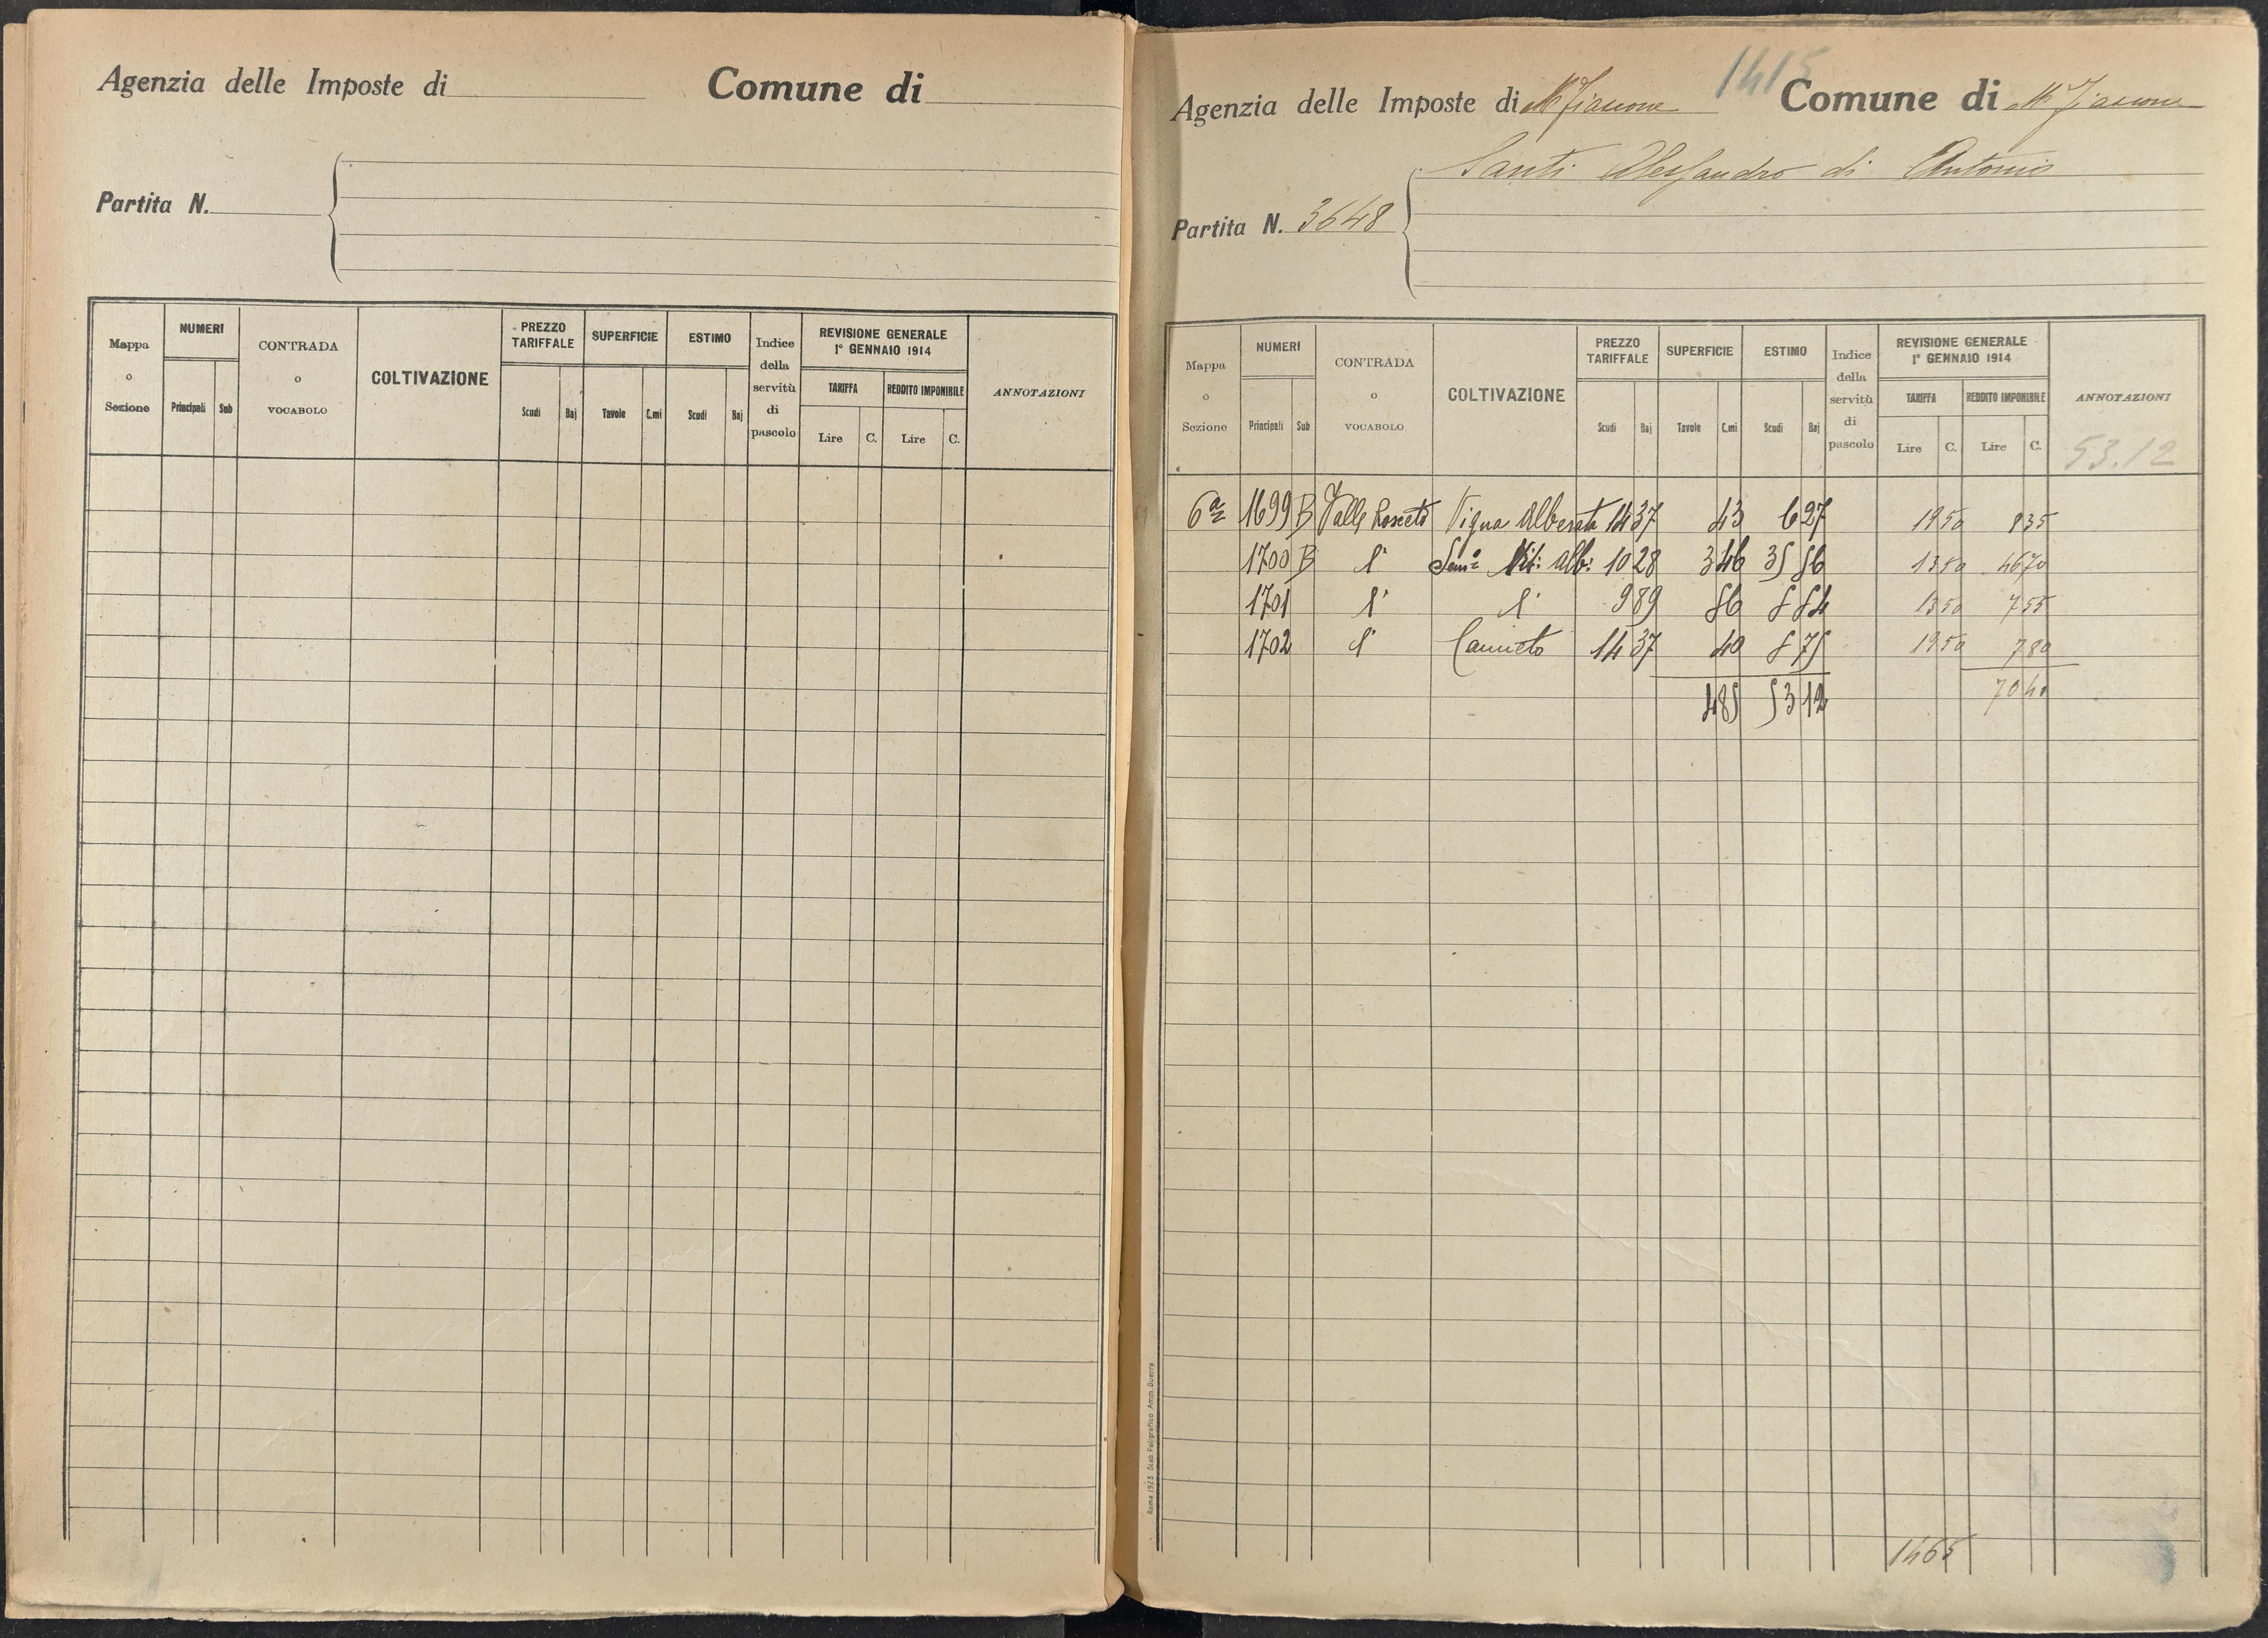 Agenzia delle Imposte di
Comune di
Partita N.
Mappa o Sezione
NUMERI
Principali Sub
CONTRADA o VOCABOLO
COLTIVAZIONE
PREZZO TARIFFALE
Scudi Baj
SUPERFICIE
Tavole C.mi
ESTIMO
Scudi Baj
Indice della servitù di pascolo
REVISIONE GENERALE
1° GENNAIO 1914
TARIFFA
Lire C.
REDDITO IMPONIBILE
Lire C.
ANNOTAZIONI
1415
Agenzia delle Imposte di M. Fiascone
Comune di M. Fiascone
Santi Alessandro di Antonio
Partita N. 3648
Mappa o Sezione
NUMERI
Principali Sub
CONTRADA o VOCABOLO
COLTIVAZIONE
PREZZO TARIFFALE
Scudi Baj
SUPERFICIE
Tavole C.mi
ESTIMO
Scudi Baj
Indice della servitù di pascolo
REVISIONE GENERALE
1° GENNAIO 1914
TARIFFA
Lire C.
REDDITO IMPONIBILE
Lire C.
ANNOTAZIONI
53.12
6a 1699 B Valle Rosceto Vigna Alberata 14 37 43 6 27 19 50 8 35
1700 B l° Semo Vit: alb: 10 28 3 46 35 56 13 50 46 70
1701 l° l° 9 89 56 5 54 13 50 7 55
1702 l° Canneto 14 37 40 5 75 19 50 7 80
4 85 53 12 70 40
Roma 1923 Stab. Poligrafico Amm. Guerra
1465